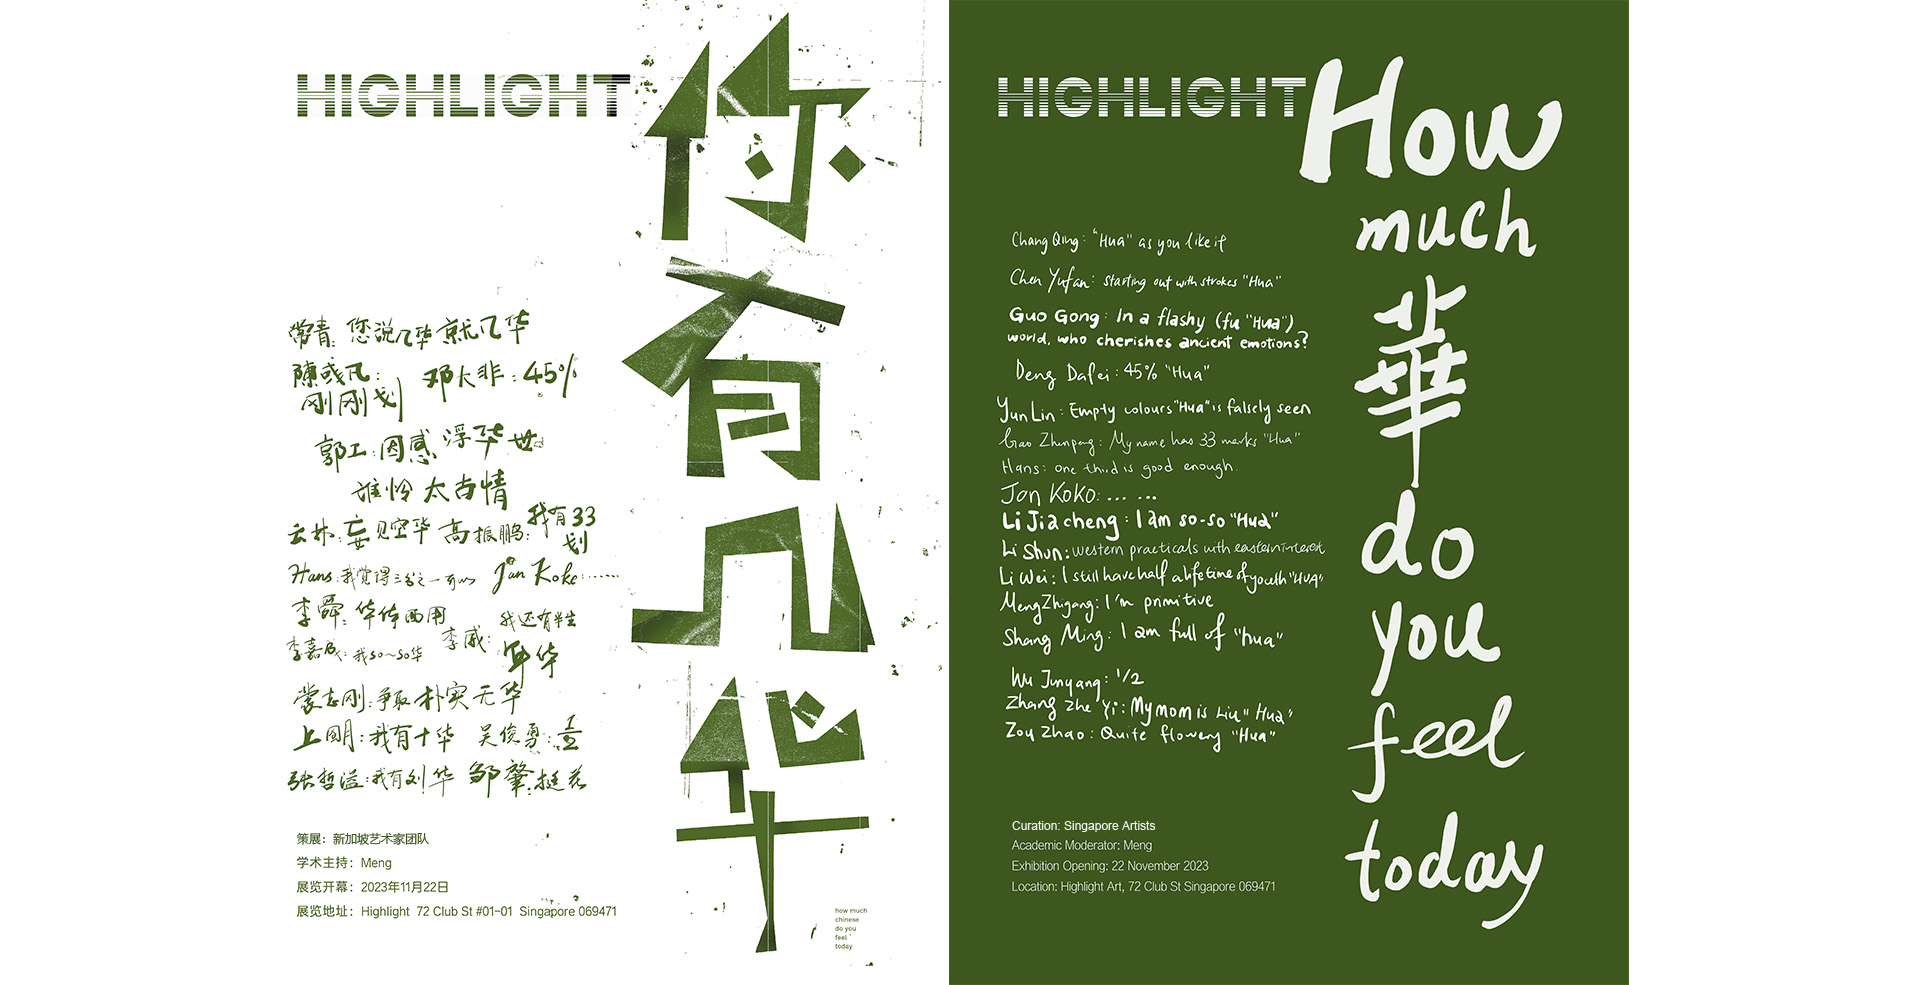 HIGHLIGHT
你有几华
常青：您说几华就几华
陳彧凡：
刚刚划
邓大非：45%
郭工：因感浮华世
谁怜太古情
云林：妄见空华
高振鹏：我有33
划
Hans：我觉得三分之一可以
Jon Koko：……
李舜：华体西用
李嘉成：我so~so华
李威：
我还有半生
年华
蒙志刚：争取朴实无华
上官明：我有十华
吴俊勇：1/2
张哲溢：我有刘华
邹肇：挺花
策展：新加坡艺术家团队
学术主持：Meng
展览开幕：2023年11月22日
展览地址：Highlight 72 Club St #01-01 Singapore 069471
how much
chinese
do you
feel
today
HIGHLIGHT
How
much
華
do
you
feel
today
Chang Qing: "Hua" as you like it
Chen Yufan: starting out with strokes "Hua"
Guo Gong: In a flashy (fu "Hua")
world, who cherishes ancient emotions?
Deng Dafei: 45% "Hua"
Yun Lin: Empty colours "Hua" is falsely seen
Gao Zhenpeng: My name has 33 marks "Hua"
Hans: one third is good enough.
Jon KOKO: ... ...
Li Jiacheng: I am so-so "Hua"
Li Shun: western practicals with eastern interest
Li Wei: I still have half a lifetime of youth "HUA"
Meng Zhigang: I'm primitive
Shang Ming: I am full of "hua"
Wu Junyang: 1/2
Zhang Zhe Yi: My mom is Liu "Hua"
Zou Zhao: Quite flowery "Hua"
Curation: Singapore Artists
Academic Moderator: Meng
Exhibition Opening: 22 November 2023
Location: Highlight Art, 72 Club St Singapore 069471